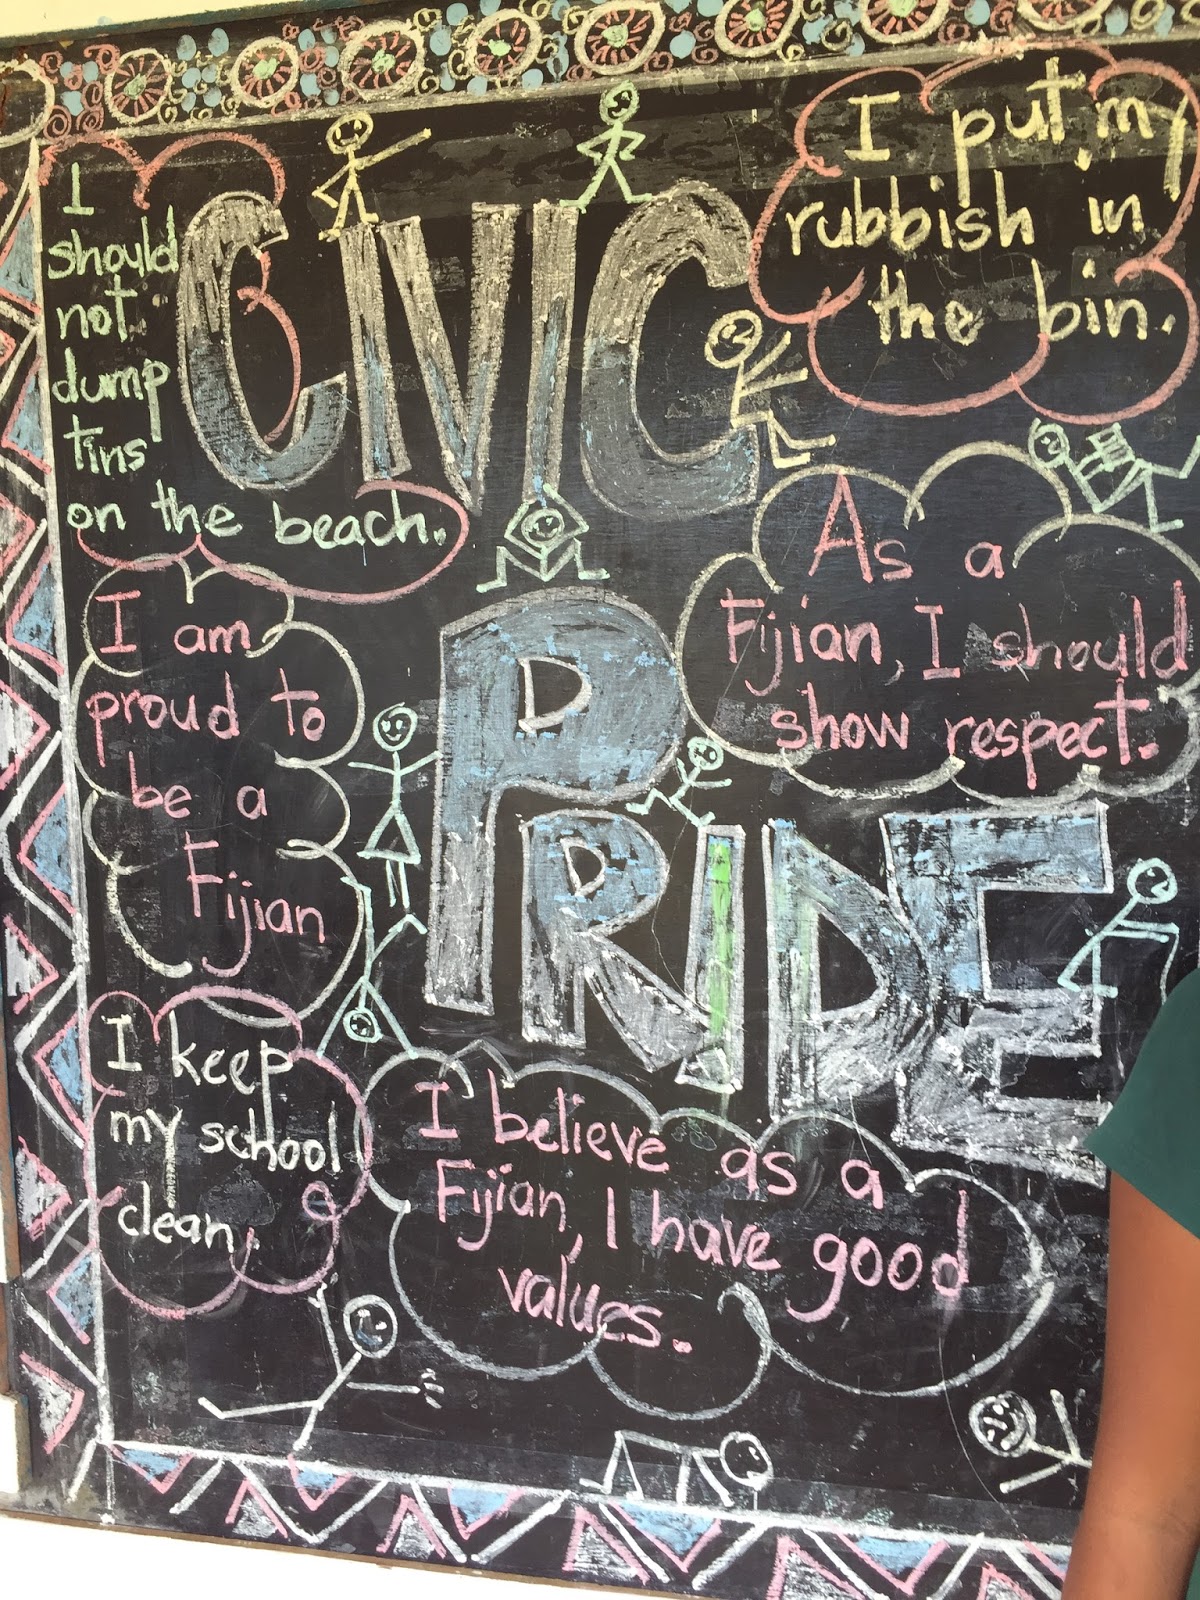 CIVIC
PRIDE
I
should
not
dump
tins
on the beach.
I put my
rubbish in
the bin.
As a
Fijian, I should
show respect.
I am
proud to
be a
Fijian
I keep
my school
clean.
I believe as a
Fijian, I have good
values.